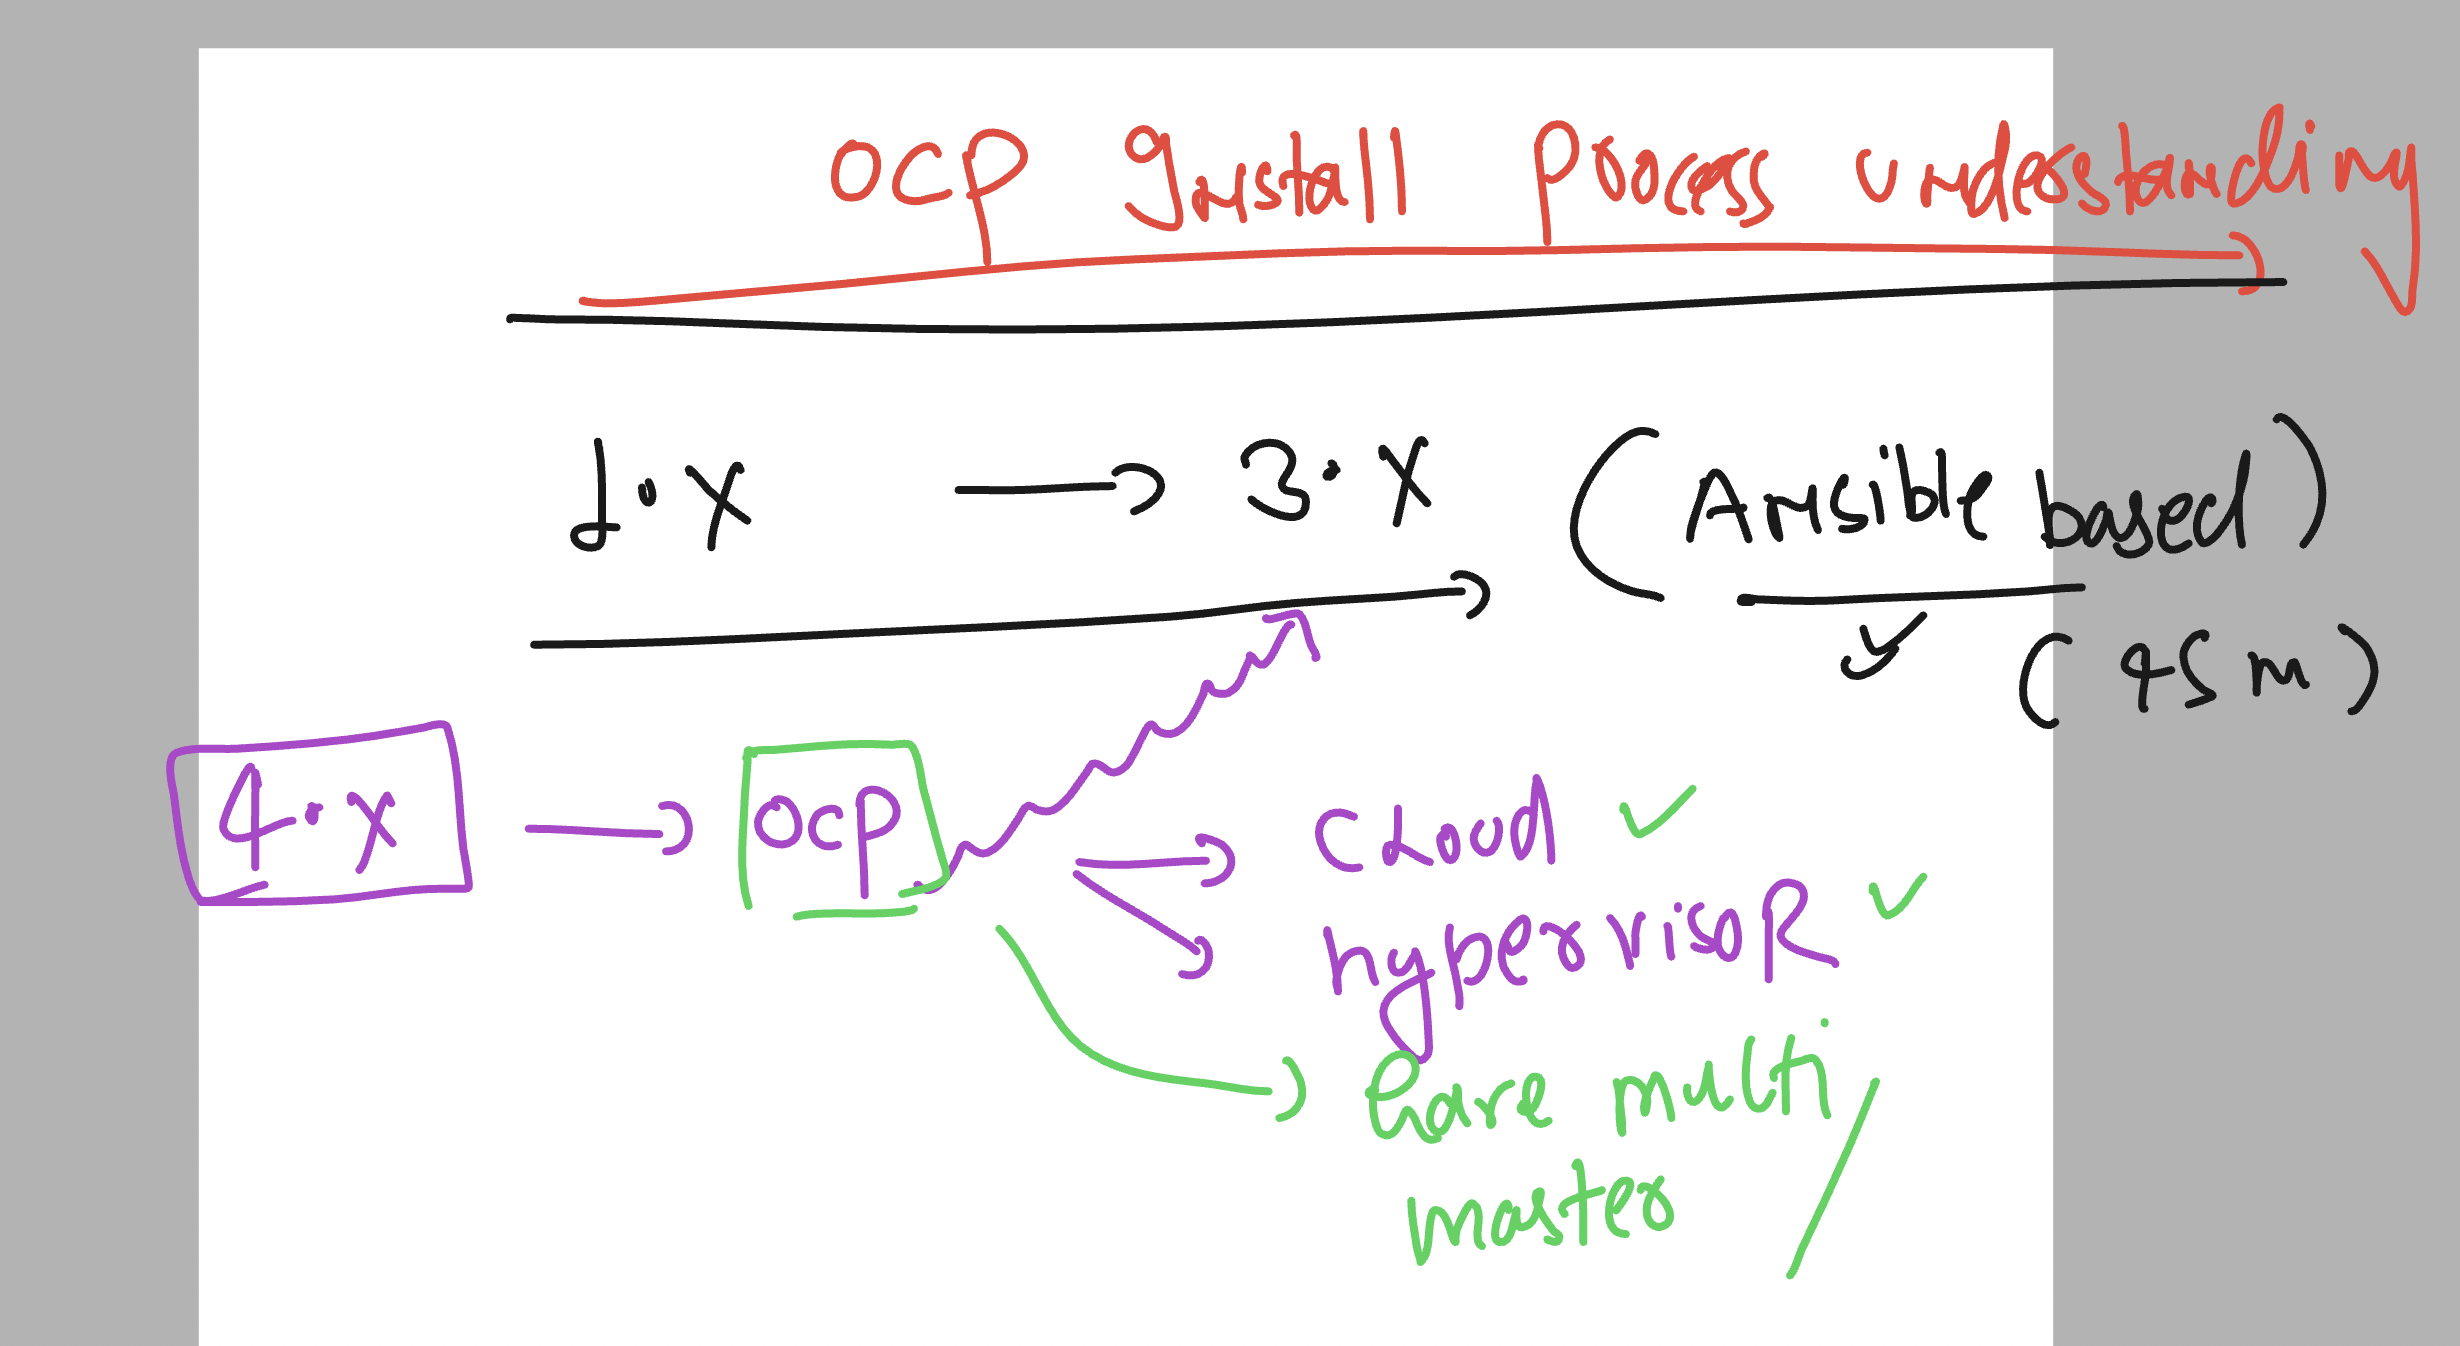 OCP Install Process understanding
1.x → 3.x (Ansible based)
(45m)
4.x → OCP → cloud ✓
→ hypervisor ✓
→ Bare multi
master